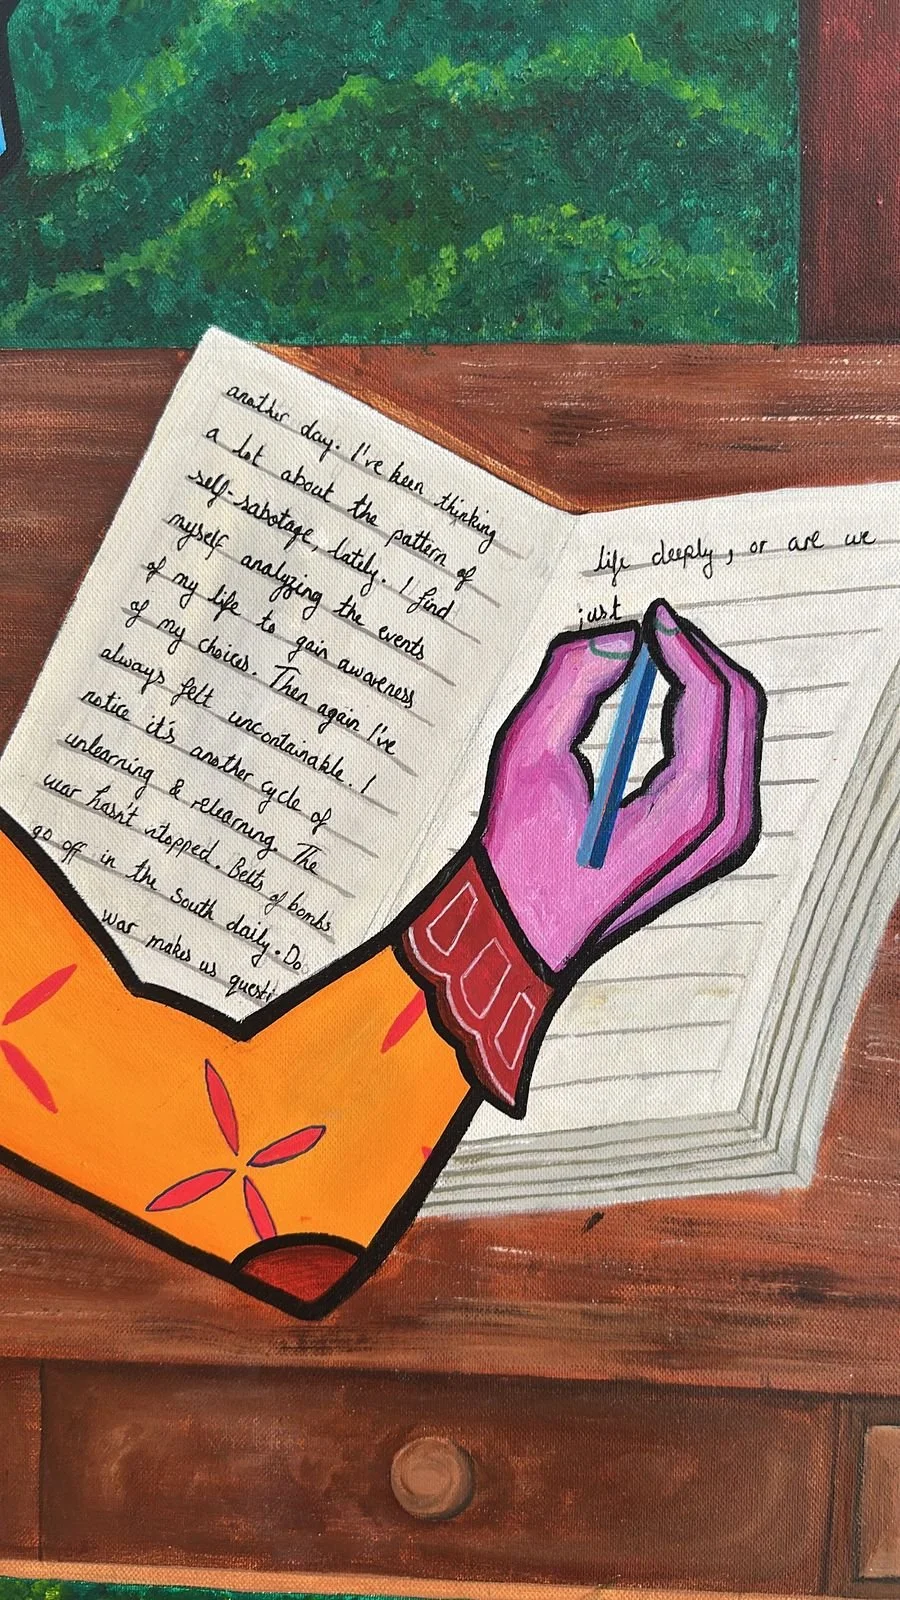 another day. I've been thinking
a lot about the pattern of
self-sabotage, lately. I find
myself analyzing the events
of my life to gain awareness
of my choices. Then again I've
always felt uncontainable. I
notice it's another cycle of
unlearning & relearning. The
war hasn't stopped. Belts of bombs
go off in the South daily. Do
war makes us questi
life deeply, or are we
just